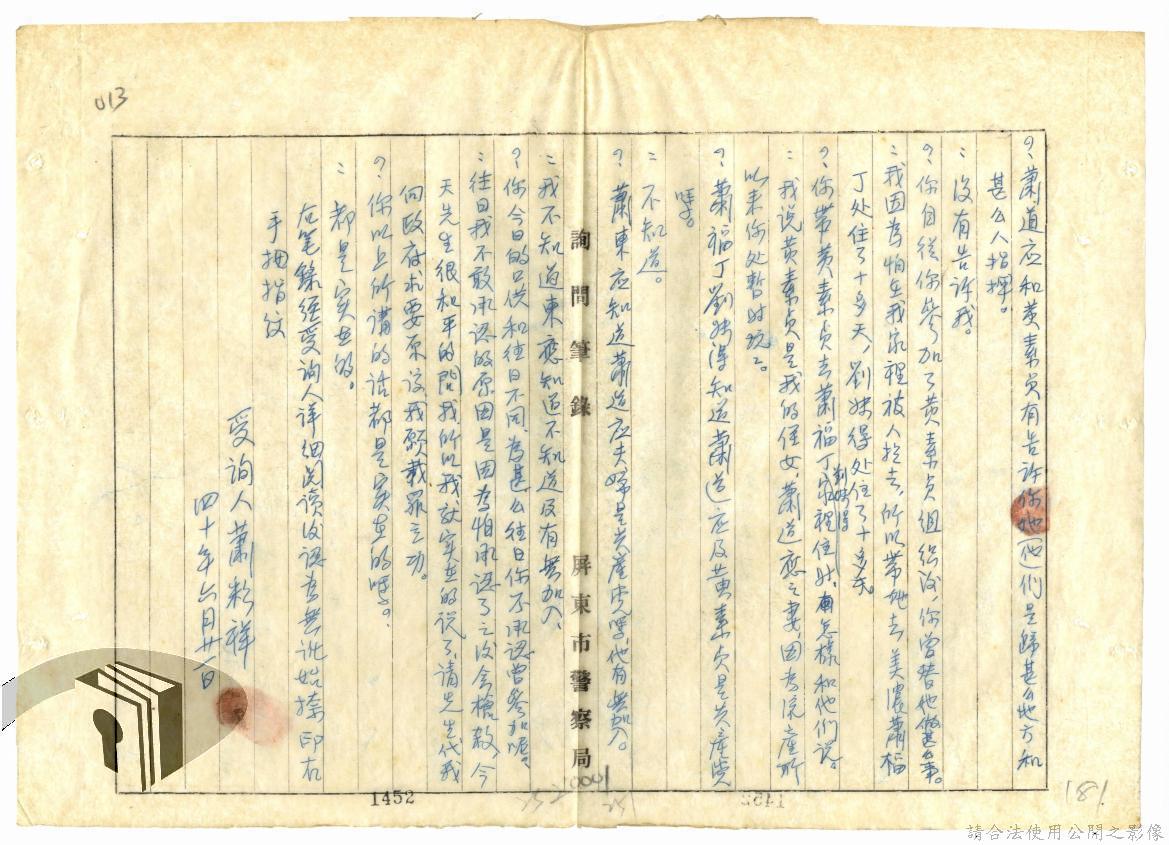 013
?:蕭道应和黃素貞有告訴你她(他)们是歸甚么地方和
甚么人指揮。
:沒有告訴我。
?:你自從你參加了黃素貞組织后,你曾替她做甚么事。
:我因為怕在我家裡被人抢去,所以帶她去美濃蕭福
丁处住了十多天,劉妹得处住了十多天。
?:你帶黃素貞去蕭福丁劉妹得家裡住时,怎樣和他们說。
:我说黃素貞是我的侄女,蕭道應之妻,因為流產所
以来你处暫时玩玩。
?:蕭福丁劉妹得知道蕭道应及黃素貞是共產党
嗎。
:不知道。
?:蕭東应知道蕭道应夫婦是共產党嗎,他有無加入。
詢問筆錄 屏東市警察局
:我不知道東應知道不知道及有無加入。
?:你今日的口供和往日不同,為甚么往日你不承認曾參加呢。
:往日我不敢承認的原因是因為怕承認了之後会槍殺,今
天先生很和平的問我所以我就实在的說了,请先生代我
向政府求要原谅,我願戴罪立功。
?:你以上所講的话都是实在的嗎?
:都是实在的。
右笔錄經受詢人详细阅读後認為無訛始捺印右
手拇指纹
受詢人蕭彩祥
四十年六月廿一日
1452
1452
181
請合法使用公開之影像